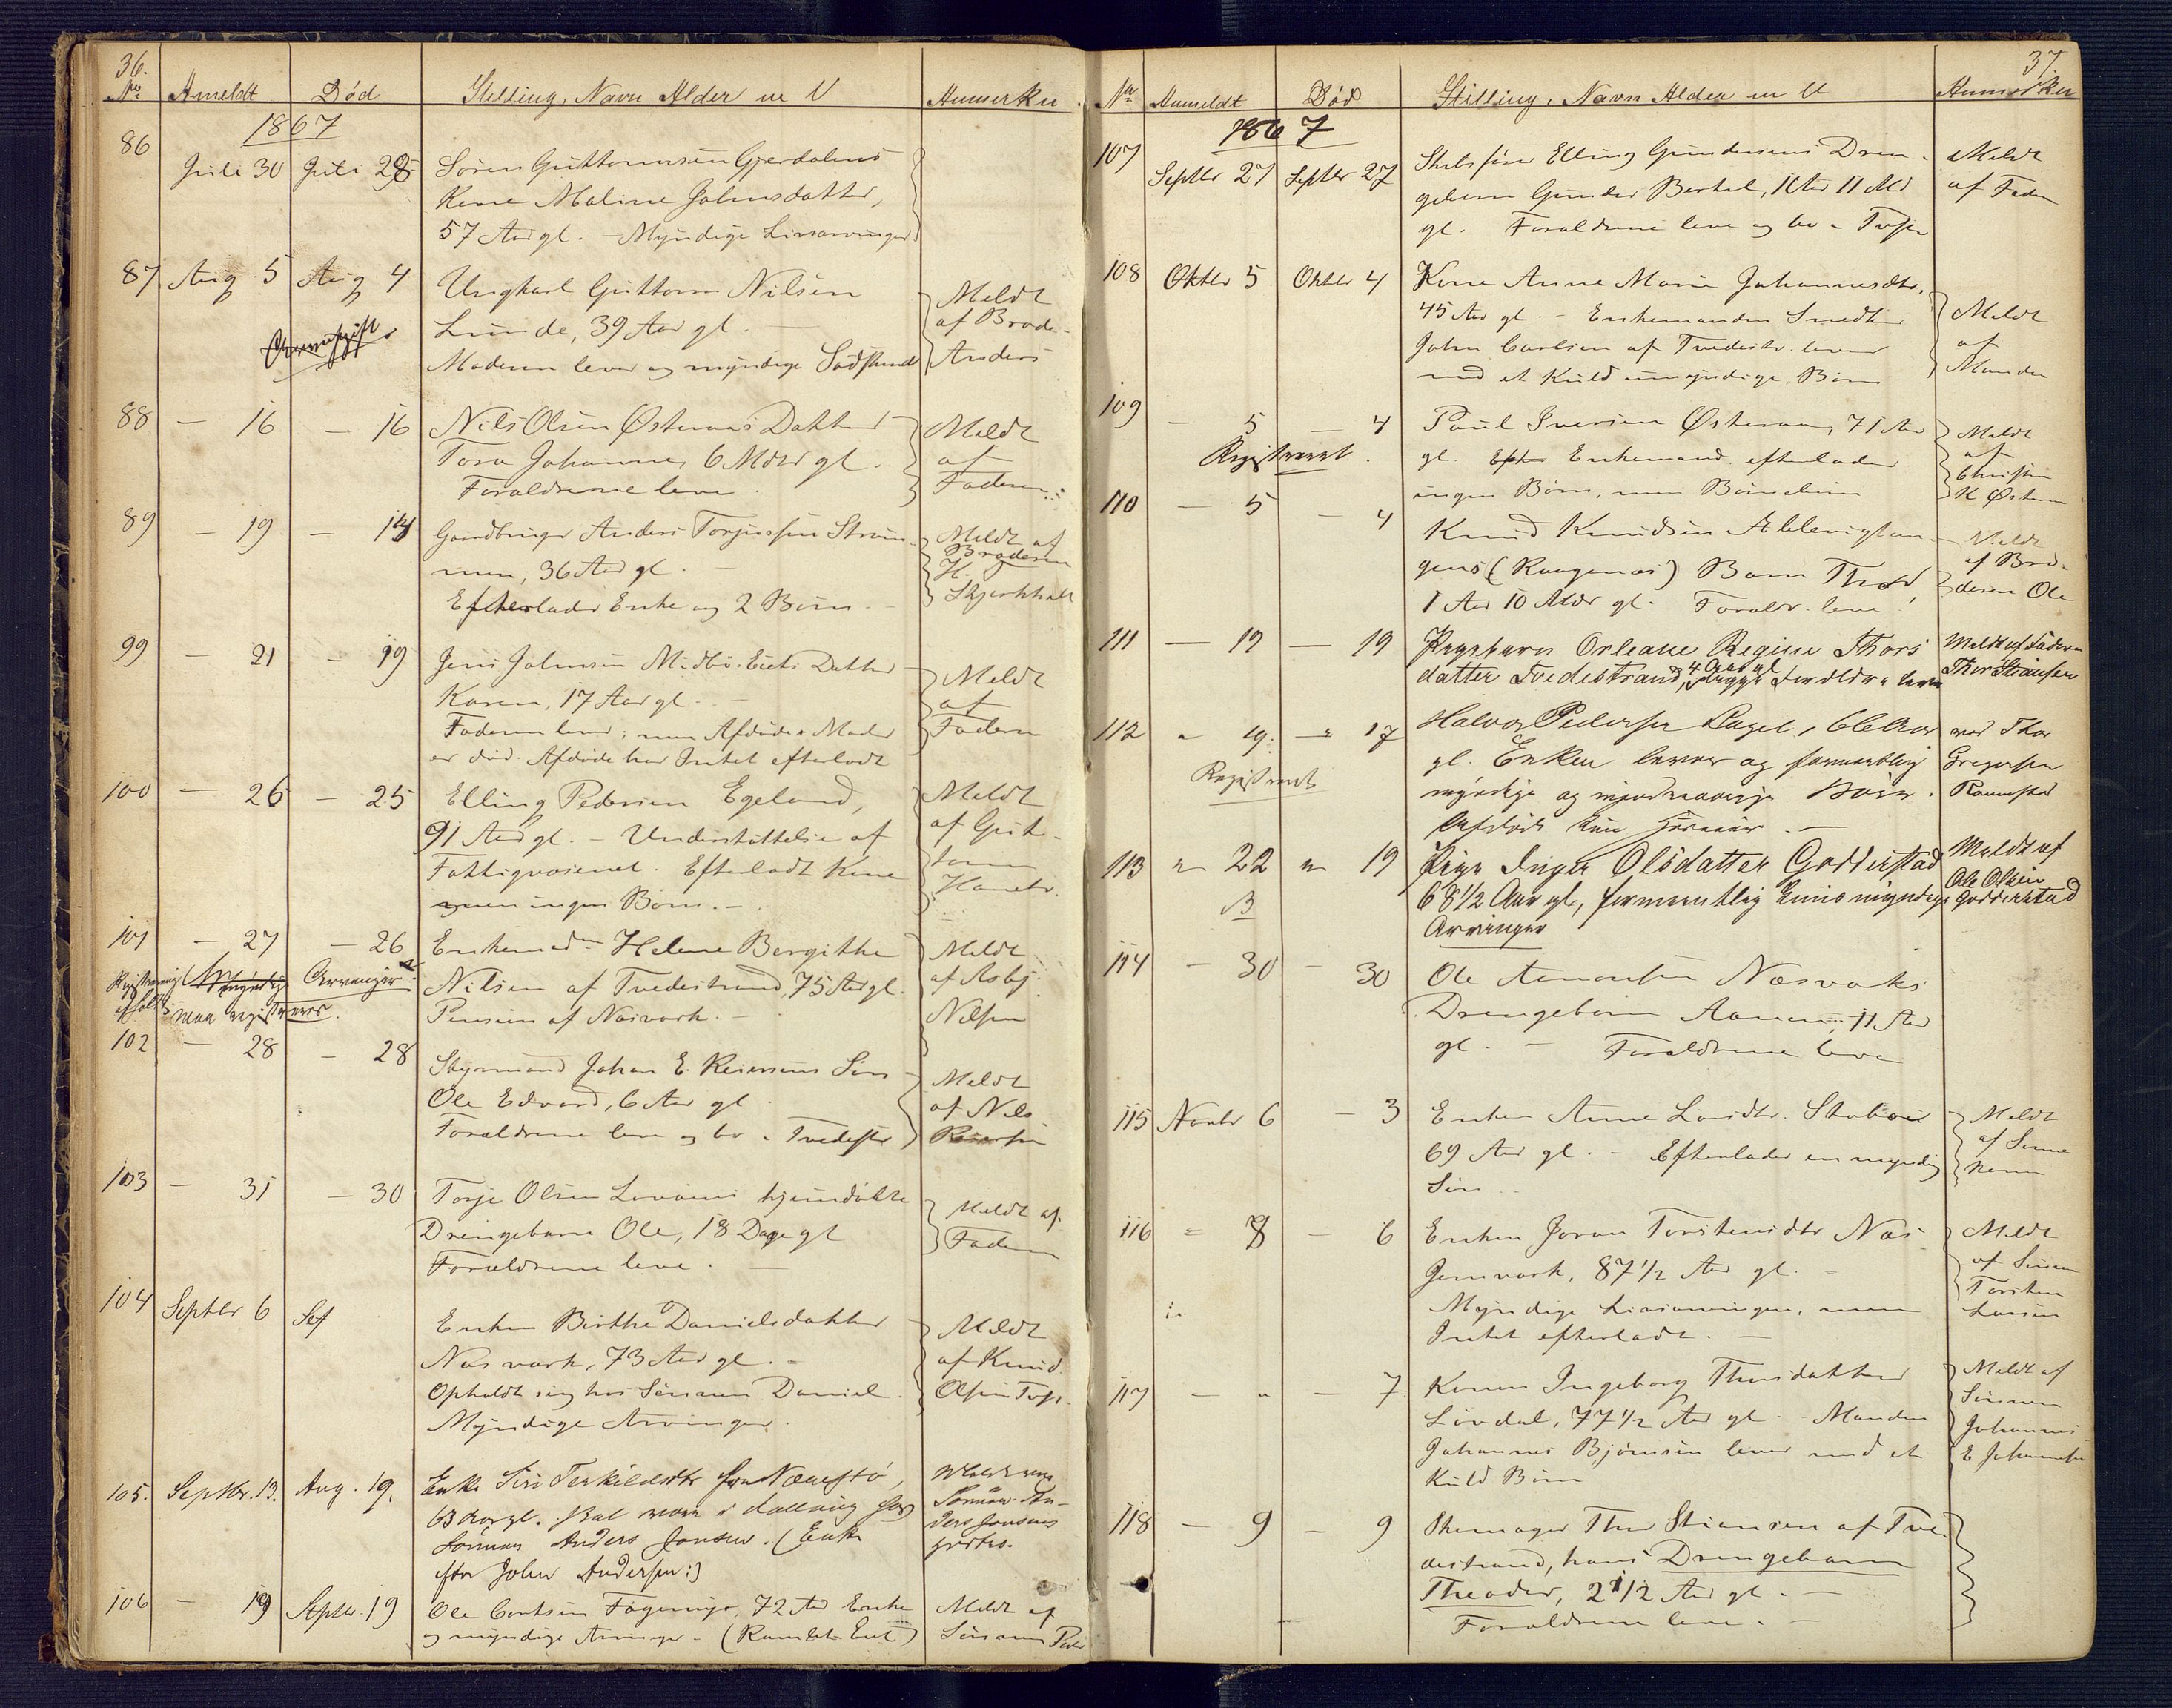 36.
No Anmeldt Död Stilling, Navn Alder m V Anmerkn.
1867
86 Juli 30 Juli 28 Søren Guttormsen Gjerdalens
Kone Maline Johnsdatter,
57 Aar gl. - Myndige Livsarvinger
87 Aug 5 Aug 4 Ungkarl Guttorm Nilsen
Lunde, 39 Aar gl.
Moderen lever og myndige Sødskend
Meldt
af Brode-
Anders
88 - 16 - 16 Nils Olsen Østeraas Datter
Tora Johanne, 6 Mdr gl.
Forældrene leve.
Meldt
af
Faderen
89 - 19 - 14 Gaardbruger Anders Torjussen Strøm-
men, 36 Aar gl. -
Efterlader Enke og 2 Børn. -
Meldt af
Broderen
H.
99 - 21 - 19 Jens Johnsen Midbø. Eiets Datter
Karen, 17 Aar gl. -
Faderen lever; men Afdødes Moder
er död. Afdøde har Intet efterladt
Meldt
af
Faderen
100 - 26 - 25 Elling Pedersen Egeland,
91 Aar gl. - Understøttelse af
Fattigvæsenet. Efterladt Kone
men ingen Børn. -
Meldt
af Gut-
torm
101 - 27 - 26 Enkemadm Helene Bergithe
Nilsen af Tvedestrand, 75 Aar gl.
Pension af Næsværk. -
Myndig Arvinger.
maa registreres.
Meldt
af Asbj.
Nilsen
102 - 28 - 28 Styrmand Johan E. Reiersens Søn
Ole Edvard, 6 Aar gl
Forældrene leve og bo i Tvedestr
Meldt
af Nils
Reiersen
103 - 31 - 30 Torje Olsen Løvaas's hjemdøbte
Drengebarn Ole, 18 Dage gl
Forældrene leve. -
Meldt af
Faderen
104 Septbr 6 Sep Enken Birthe Danielsdatter
Næsværk, 73 Aar gl. -
Opholdt sig hos Sønnen Daniel.
Myndige Arvinger.
Meldt
af Knud
Olsen
105. Septbr. 13. Aug. 19. Enke Siri Terkildsdtr
63 Aar gl. Skal være i
Sønnen Anders Jonsen. (Enke
efter John Andersen:)
106 - 19 Septbr. 19 Ole 72 Aar Enke
og myndige Arvinger -
Meldt af
Sønnen Peder
37.
No Anmeldt Död Stilling, Navn Alder m V Anmerkn
1867
107 Septbr 27 Septbr 27 Skibsfører Elling Gundersens Dren-
gebarn Gunder Bertel, 11 Md
gl. Forældrene leve og bo i
Meldt
af Fader
108 Oktbr 5 Oktbr 4 Kone Anne Marie Johannesdtr,
45 Aar gl. - Enkemanden Snedker
John Carlsen af Tvedestr. lever
med et Kuld umyndige Børn
Meldt
af
Manden
109 - 5 - 4 Poul Iversen Østeraa, 71 Aar
gl. Enkemand efterlader
ingen Børn, men Børnebørn
Registreret.
Meldt
af
Christen
K Østeraa
110 - 5 - 4 Knud Knudsen
gens Barn Thor,
1 Aar 10 Mdr gl. Forældr. leve!
Meldt
af Bro-
deren Ole
111 - 19 - 19 Pigebarn Orleane Regine Thors
datter Tvedestrand, 4 Aar gl begge Forældre leve
Meldt af Faderen
Thor Stiansen
112 " 19. - " 17 Halvor Pedersen 66 Aar
gl. Enken lever og formentlig
myndige og mindreaarige Børn.
Registreret
ved Thor
Gregersen
Ramstad
113 " 22 " 19 Pige Inger Olsdatter Godderstad
68 1/2 Aar gl, formentlig kuns myndige
Arvinger
Meldt af
Ole Olsen
Godderstad
114 - 30 - 30 Ole Aanonsen Næsværks
Drengebarn Aanon, 11 Aar
gl. - Forældrene leve
115 Novbr 6 - 3 Enken Anne Larsdtr.
69 Aar gl. - Efterlader en myndig
Søn
Meldt
af Sønne
116 = 8 - 6 Enken Joran Torstensdtr Næs
Jernværk, 87 1/2 Aar gl. -
Myndige Livsarvinger, men
Intet efterladt. -
Meldt
af Sønnen
Torsten
Larsen
117 - " - 7 Konen Ingeborg Thorsdatter
Løvdal, 77 1/2 Aar gl. - Manden
Johannes Bjørnsen lever med et
Kuld Børn
Meldt af
Sønnen
Johannes
E Johannesen
118 - 9 - 9 Skomager Thor Stiansen af Tve-
destrand, hans Drengebarn
Theodor, 2 1/2 Aar gl. -
Forældrene leve. -